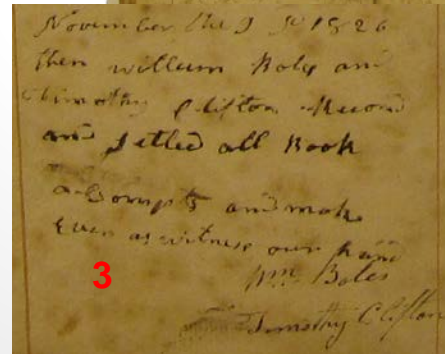 November the 9 D 1826
then william Boles and
timothy Clifton Recond
and setled all Book
acCompts and mak
Even as witness our hand
Wm Boles
3
Timothy Clifton